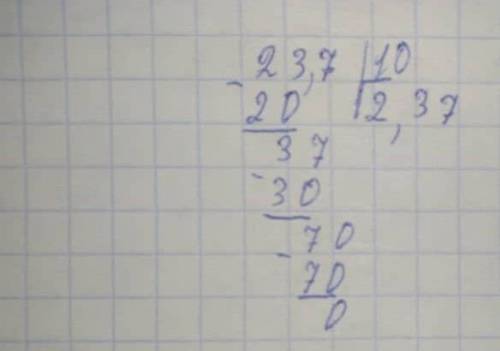 23,7 | 10
- 20 | 2,37
37
- 30
70
- 70
0